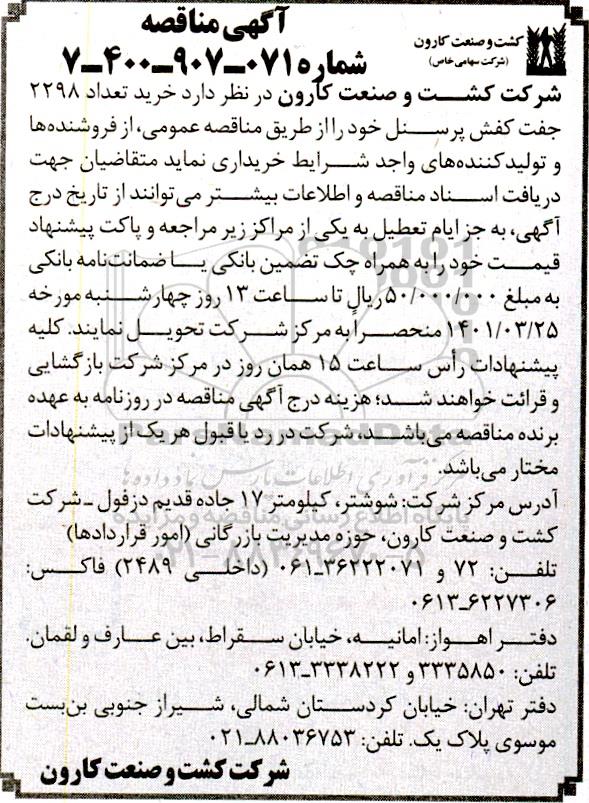 کشت و صنعت کارون
(شرکت سهامی خاص)
آگهی مناقصه
شماره ۰۷۱ـ۹۰۷ـ۴۰۰ـ۷
شرکت کشت و صنعت کارون در نظر دارد خرید تعداد ۲۲۹۸
جفت کفش پرسنل خود را از طریق مناقصه عمومی، از فروشنده‌ها
و تولیدکننده‌های واجد شرایط خریداری نماید متقاضیان جهت
دریافت اسناد مناقصه و اطلاعات بیشتر می‌توانند از تاریخ درج
آگهی، به جز ایام تعطیل به یکی از مراکز زیر مراجعه و پاکت پیشنهاد
قیمت خود را به همراه چک تضمین بانکی یا ضمانت‌نامه بانکی
به مبلغ ۵۰/۰۰۰/۰۰۰ ریال تا ساعت ۱۳ روز چهارشنبه مورخه
۱۴۰۱/۰۳/۲۵ منحصراً به مرکز شرکت تحویل نمایند. کلیه
پیشنهادات رأس ساعت ۱۵ همان روز در مرکز شرکت بازگشایی
و قرائت خواهند شد؛ هزینه درج آگهی مناقصه در روزنامه به عهده
برنده مناقصه می‌باشد، شرکت در رد یا قبول هر یک از پیشنهادات
مختار می‌باشد.
آدرس مرکز شرکت: شوشتر، کیلومتر ۱۷ جاده قدیم دزفول ـ شرکت
کشت و صنعت کارون، حوزه مدیریت بازرگانی (امور قراردادها)
تلفن: ۷۲ و ۳۶۲۲۲۰۷۱ـ۰۶۱ (داخلی ۲۴۸۹) فاکس:
۶۲۲۷۳۰۶ـ۰۶۱۳
دفتر اهواز: امانیه، خیابان سقراط، بین عارف و لقمان.
تلفن: ۳۳۳۵۸۵۰ و ۳۳۳۸۲۲۲ـ۰۶۱۳
دفتر تهران: خیابان کردستان شمالی، شیراز جنوبی بن‌بست
موسوی پلاک یک. تلفن: ۸۸۰۳۶۷۵۳ـ۰۲۱
شرکت کشت و صنعت کارون
ParsNamadData
مرکز فرآوری اطلاعات پارس نماد داده‌ها
پایگاه اطلاع رسانی مناقصه و مزایده
۰۲۱-۸۸۳۴۹۶۷۰-۵